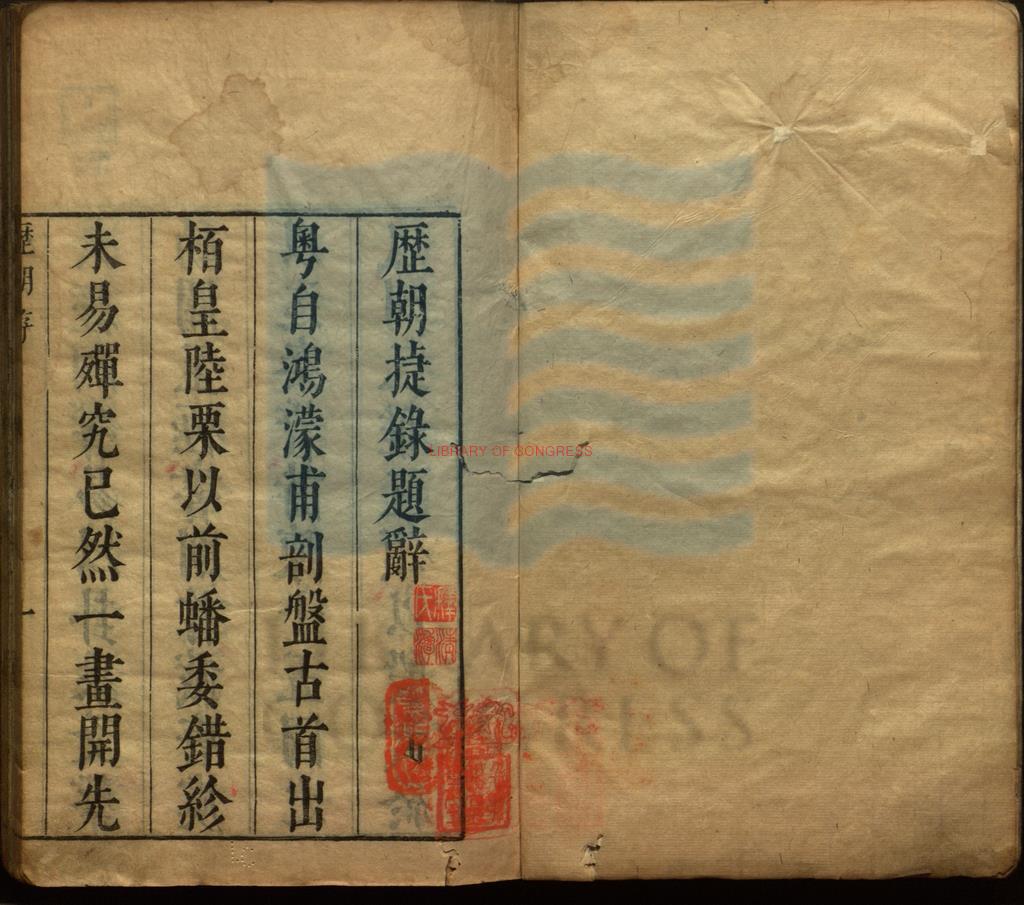 歴朝捷錄題辭
粤自鴻濛甫剖盤古首出
栢皇陸栗以前蟠委錯紾
未易殫究已然一畫開先
一
LIBRARY OF CONGRESS